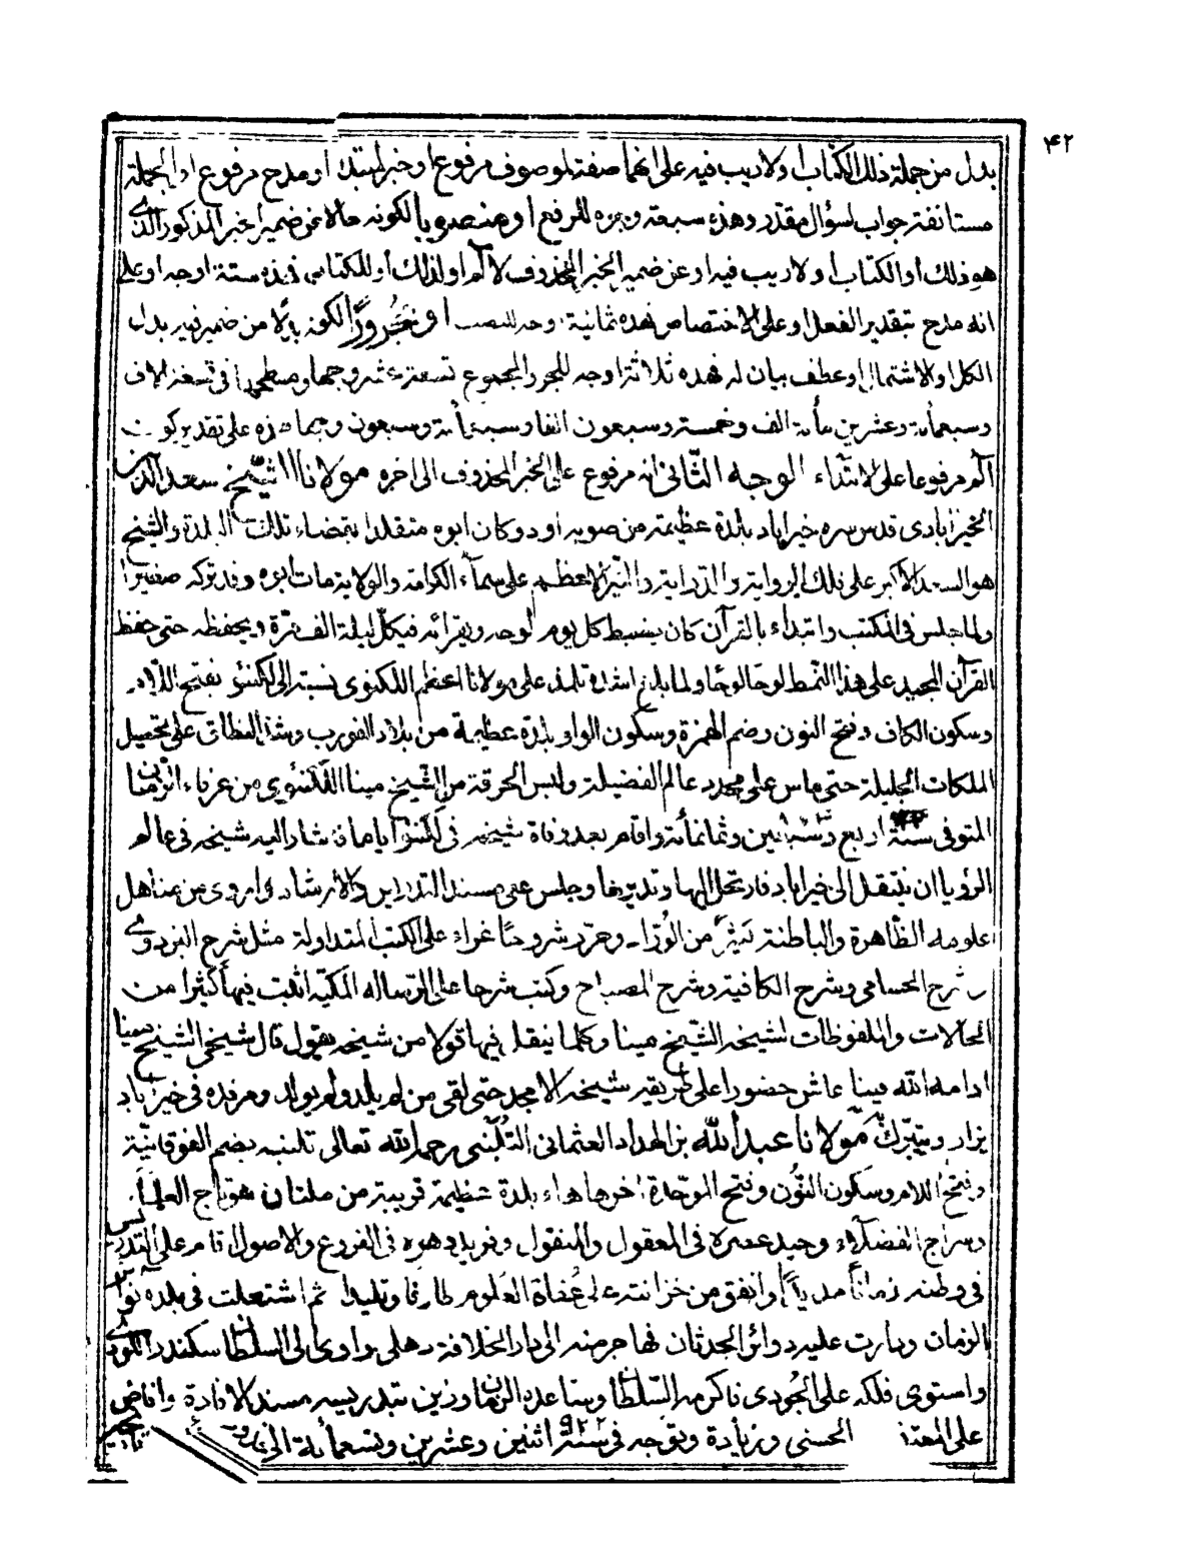 ۴۲
بدل من جملة ذلك الكتاب او لا ريب فيه على انها صفة لموصوف مرفوع او خبر لمبتدا او مدح مرفوع او الجملة
مستانفة جواب لسؤال مقدر وهذه سبعة وجوه للرفع او منصوبا لكونه حالا عن ضمير الخبر المذكور الذي
هو ذلك او الكتاب او لا ريب فيه او عن ضمير الخبر المحذوف لآلم او لذلك او للكتاب فهذه ستة اوجه او على
انه مدح بتقدير الفعل او على الاختصاص فهذه ثمانية اوجه للنصب او مجرورًا لكونه بدلًا من ضمير فيه بدل
الكل او الاشتمال او عطف بيان له فهذه ثلاثة اوجه للجر والمجموع تسعة عشر وجها ومسطحها في تسعة الاف
وسبعمائة وعشرين مائة الف وخمسة وسبعون الفا وسبعمائة وسبعون وجها هذه على تقدير كون
آلم مرفوعا على الابتداء الوجه الثاني انه مرفوع على الخبر المحذوف الى اخره مولانا الشيخ سعد الدين
الخيرابادى قدس سره خيراباد بلدة عظيمة من صوبه اود وكان ابوه متقلدا بقضاء تلك البلدة والشيخ
هو السعد الاكبر على فلك الرواية والدراية والنير الاعظم على سماء الكرامة والولاية مات ابوه وقد تركه صغيرا
ولما جلس في المكتب وابتداء بالقرآن كان يضبط كل يوم لوحه ويقرائه في كل ليلة الف مرة ويحفظه حتى حفظ
القرآن المجيد على هذا النمط لوحا لوحا ولما بلغ اشده تلمذ على مولانا اعظم اللكنوى نسبة الى لكنئو بفتح اللام
وسكون الكاف وفتح النون وضم الهمزة وسكون الواو بلدة عظيمة من بلاد الفورب وشد النطاق على تحصيل
الملكات الجليلة حتى ماس على محدد عالم الفضيلة ولبس الخرقة من الشيخ مينا اللكنوي من عرفاء الزمن
المتوفى سنة اربع وثمانين وثمانمائة واقام بعد وفاة شيخه في لكنئو اياما فاشار اليه شيخه في عالم
الرؤيا ان ينتقل الى خيراباد فارتحل اليها وتديرها وجلس على مسند التدريس والارشاد واروى من مناهل
علومه الظاهرة والباطنة كثيرًا من الورّاد وحرر شروحا غراء على الكتب المتداولة مثل شرح البزدوي
وشرح الحسامي وشرح الكافية وشرح المصباح وكتب شرحا على الرسالة المكية اثبت فيها كثيرا من
الحالات والملفوظات لشيخه الشيخ مينا وكلما ينقل فيها قولا من شيخه يقول قال شيخي الشيخ مينا
ادامه الله فينا عاش حضورا على طريقه شيخه الامجد حتى لقي من لم يلد ولم يولد ومرقده في خيراباد
يزار ويتبرك مولانا عبد الله بن الهداد العثماني التلنبي رحمه الله تعالى تلنبه بضم الفوقانية
وفتح اللام وسكون النون وفتح الموحدة اخرها هاء بلدة عظيمة قريبة من ملتان هو تاج العلماء
وسراج الفضلاء وحيد عصره في المعقول والمنقول وفريد دهره في الفروع والاصول اقام على التدريس
في وطنه زمانًا مديدًا وانفق من خزانته على عفاة العلوم طارفا وتليدا ثم اشتعلت في بلده نوائر
الزمان ودارت عليه دوائر الحدثان فهاجر منه الى دار الخلافة دهلي واوى الى السلطان سكندر اللودي
واستوى فلكه على الجودى فاكرمه السلطان وساعده الزمان وزين بتدريسه مسند الافادة وافاض
على المهتد الحسنى وزيادة وتوجه في سنة ۹۲۲ اثنين وعشرين وتسعمائة الى